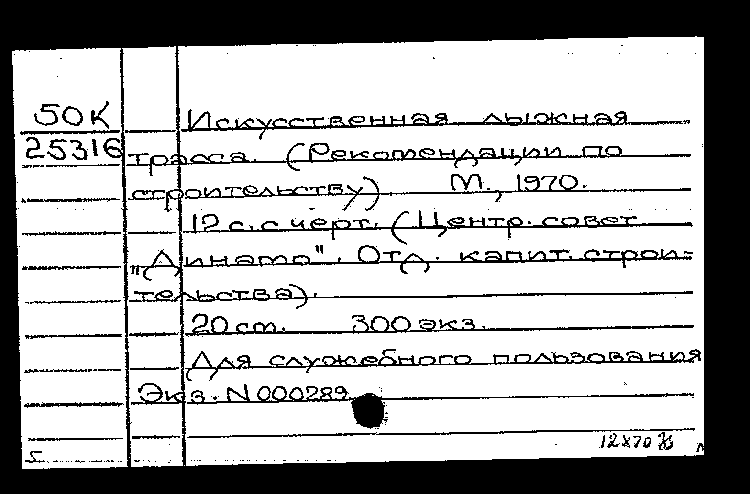 50К Искусственная лыжная
25316 трасса. (Рекомендации по
строительству). М., 1970.
12 с. с черт. (Центр. совет
"Динамо". Отд. капит. строи-
тельства).
20 см. 300 экз.
Для служебного пользования
Экз. N 000289